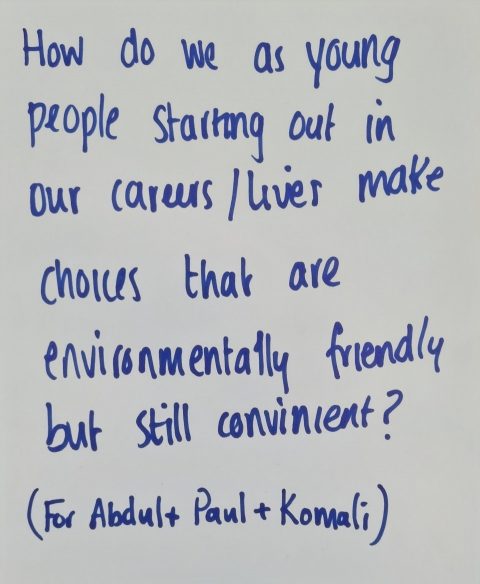 How do we as young
people starting out in
our careers/lives make
choices that are
environmentally friendly
but still convinient?
(For Abdul + Paul + Komali)